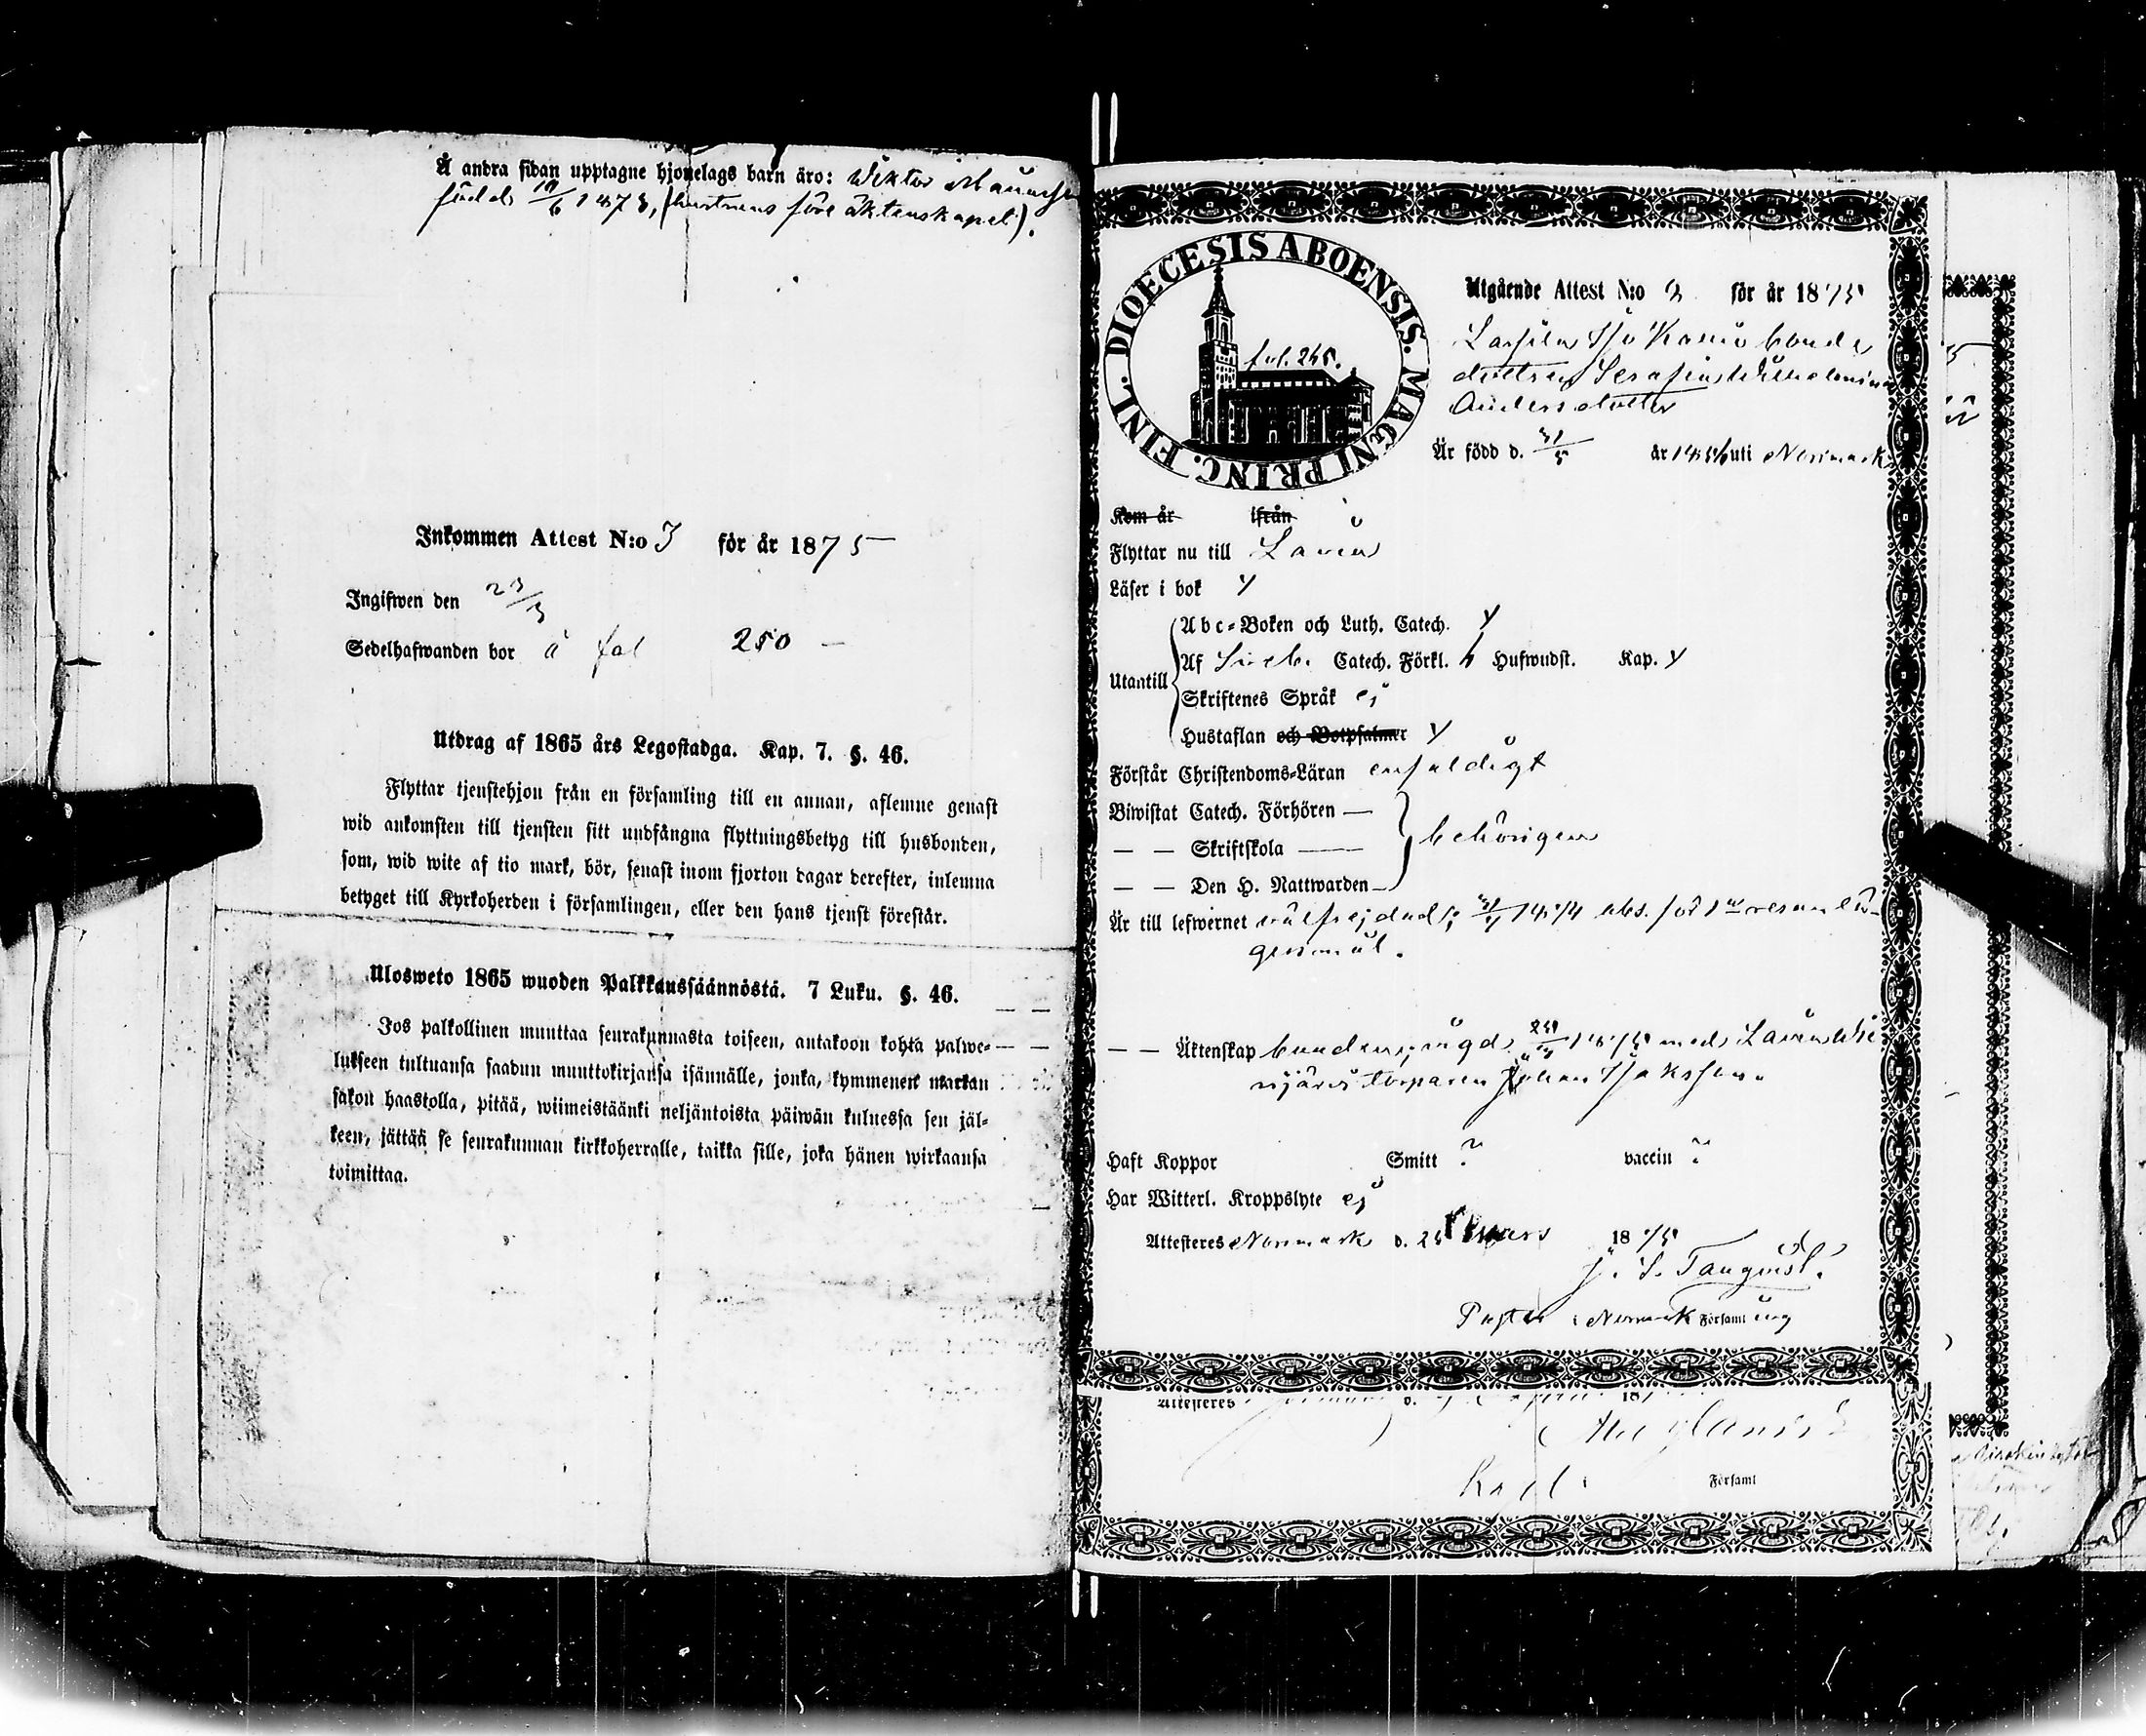 Å andra sidan upptagne hjonelags barn äro: Wiktor
född 19/6 1873, (hustruns före äktenskapet).
Inkommen Attest N:o 3 för år 1875
Ingifwen den 23/3
Sedelhafwanden bor å fol 250 —
Utdrag af 1865 års Legostadga. Kap. 7. §. 46.
Flyttar tjenstehjon från en församling till en annan, aflemne genast
wid ankomsten till tjensten sitt undfångna flyttningsbetyg till husbonden,
som, wid wite af tio mark, bör, senast inom fjorton dagar derefter, inlemna
betyget till Kyrkoherden i församlingen, eller den hans tjenst förestår.
Ulosweto 1865 wuoden Palkkaussäännöstä. 7 Luku. §. 46.
Jos palkollinen muuttaa seurakunnasta toiseen, antakoon kohta palwe-
lukseen tultuansa saadun muuttokirjansa isännälle, jonka, kymmenen markan
sakon haastolla, pitää, wiimeistäänki neljäntoista päiwän kuluessa sen jäl-
keen, jättää se seurakunnan kirkkoherralle, taikka sille, joka hänen wirkaansa
toimittaa.
DIOECESIS ABOENSIS. MAGNI PRINC. FINL.
fol. 265.
Utgående Attest N:o 3 för år 1875
Lassila Iso Kamo bonde
dottren Serafina Wilhelmina
Andersdotter
Är född d. 31/5 år 1856 uti Norrmark
Kom år ifrån
Flyttar nu till Lavia
Läser i bok y
Utantill
Abc-Boken och Luth. Catech. y
Af Sveb. Catech. Förkl. h Hufwudst. Kap. y
Skriftenes Språk ej
Hustaflan och Botpsalmer y
Förstår Christendoms-Läran enfaldigt
Biwistat Catech. Förhören —
— — Skriftskola — behörigen
— — Den H. Nattwarden —
Är till lefwernet välfrejdad; 1874 abs. för 1a resan lä-
gersmål.
— — Äktenskap bunden, vigd 25/3 1875 med Lavia
torparen Johan Isaksson.
Haft Koppor Smitt ? vaccin ?
Har Witterl. Kroppslyte ej
Attesteres Norrmark d. 25 Mars 1875
J. S. Tanquist.
Pastor i Norrmark Församling
Attesteres d. 187
Församl